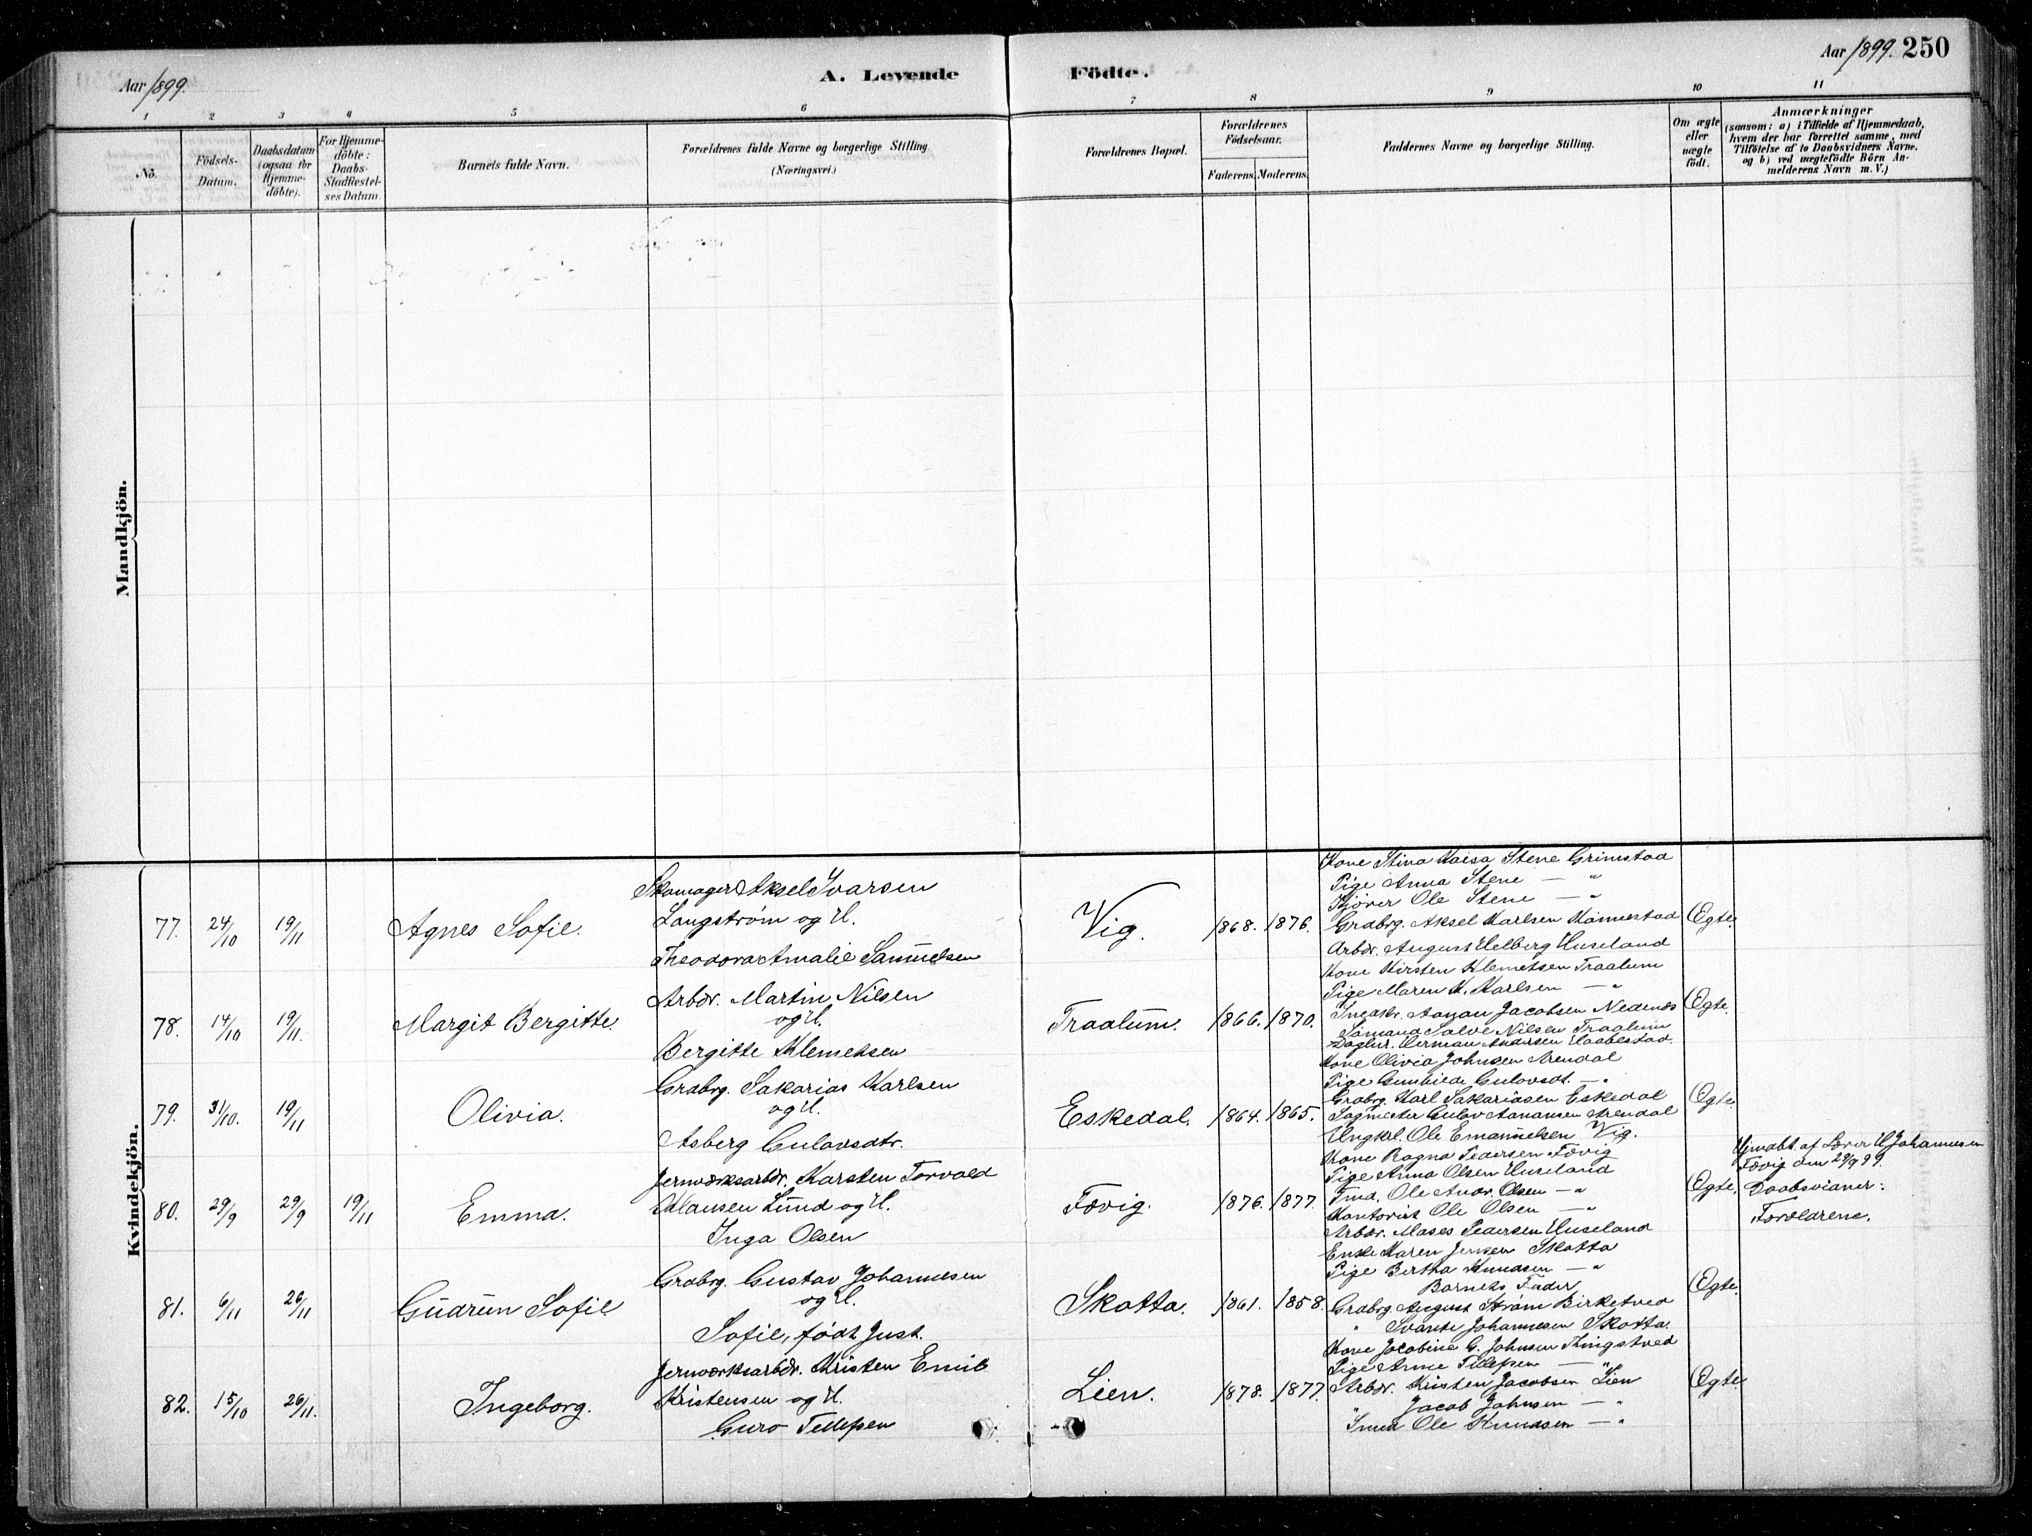 Aar 1899.
A. Levende Födte.
Aar 1899. 250
1 2 3 4 5 6 7 8 9 10 11
No.
Födsels-Datum.
Daabsdatum (ogsaa for Hjemme-döbte).
For Hjemme-döbte: Daabs-Stadfæstel-ses Datum.
Barnets fulde Navn.
Forældrenes fulde Navne og borgerlige Stilling. (Næringsvei.)
Forældrenes Bopæl.
Forældrenes Födselsaar.
Faderens. Moderens.
Faddernes Navne og borgerlige Stilling.
Om ægte eller uægte født.
Anmærkninger
(saasom: a) i Tilfælde af Hjemmedaab,
hvem der har forrettet samme, med
Tilföielse af to Daabsvidners Navne.
og b) ved uægtefödte Börn An-
melderens Navn m. V.)
Mandkjön.
Kvindekjön.
77. 24/10 19/11 Agnes Sofie.
Skomager Aksel Ivarsen
Langstrøm og H.
Theodora Amalie Samuelsen
Vig. 1868. 1876.
Kone Stina Kaisa Stene Grimstad
Pige Anna Stene — "
Kjører Ole Stene — "
Grabrg. Aksel Karlsen
Arbdr. August Helberg Huseland
Egte.
78. 14/10 19/11. Margit Bergitte.
Arbdr. Martin Nilsen
og H.
Bergitte Klemetsen
Traalum. 1866. 1870.
Kone Kirsten Klemetsen Traalum
Pige Maren K. Karlsen — "
Aanon Jacobsen Nedenes
Sømand Salve Nilsen Traalum
Herman Andersen
Egte.
79. 31/10. 19/11 Olivia.
Grabrg. Sakarias Karlsen
og H.
Asberg Gulovsdtr.
Eskedal. 1864. 1865.
Kone Olivia Johnsen Arendal
Pige Gunhilde Gulovsdt. — "
Grabrg. Karl Sakariasen Eskedal
Sagmester Gulov Aanansen Arendal
Ungkrl. Ole Emanuelsen Vig.
Egte.
80. 29/9 29/9 19/11 Emma.
Jernværksarbdr. Karsten Torvald
Klausen Lund og H.
Inga Olsen
Fævig. 1876. 1877.
Kone Ragna Pedersen Fævig
Pige Anna Olsen Huseland
Tmd. Ole Andr. Olsen — "
Kontorist Ole Olsen — "
Arbdr. Moses Pedersen Huseland
Egte.
Hjmdbt. af Lærer H. Johannesen
Fævig den 29/9 99.
Daabsvidner:
Forældrene.
81. 6/11 26/11 Gudrun Sofie
Grabrg. Gustav Johannesen
og H.
Sofie, født Just.
Skotta. 1861. 1858.
Enke Karen Jensen Skotta
Pige Bertha Knudsen — "
Barnets Fader
Grabrg August Strøm Birketved
" Svante Johannesen Skotta.
Egte.
82. 15/10 26/11. Ingeborg.
Jernværksarbdr. Kristen Emil
Kristensen og H.
Guro Tellefsen
Lien. 1878. 1877.
Kone Jacobine G. Johnsen Tingstved
Pige Anne Tellefsen — "
Arbdr. Kristen Jacobsen Lien
" Jacob Johnsen — "
Ole Knudsen — "
Egte.